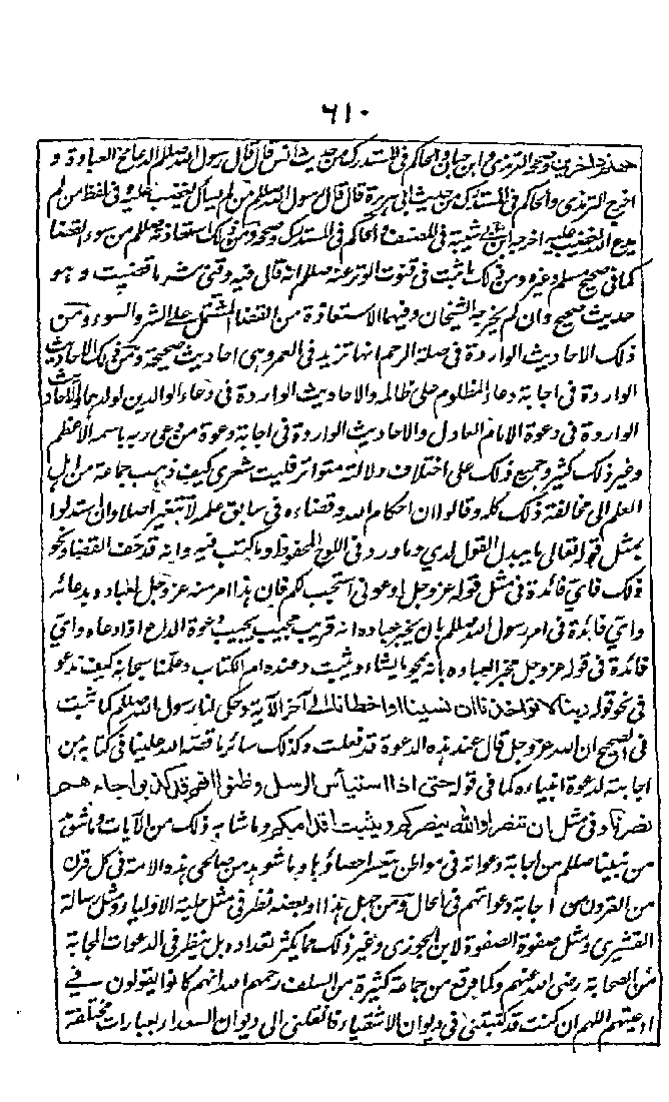 ٦١٠
وصححه الترمذي وابن حبان والحاكم في المستدرك من حديث انس قال قال رسول الله صلعم الدعا مخ العبادة و
اخرج الترمذي والحاكم في المستدرك من حديث ابي هريرة قال قال رسول الله صلعم من لم يسأل الله يغضب عليه وفي لفظ من لم
يدع الله غضب عليه اخرجه ابن ابي شيبة في المصنف والحاكم في المستدرك وصححه ومن ذلك استعاذته صلعم من سوء القضا
كما في صحيح مسلم وغيره ومن ذلك ما ثبت في قنوت الوتر عنه صلعم انه قال فيه وقني شر ما قضيت و هو
حديث صحيح وان لم يخرجه الشيخان وفيها الاستعاذة من القضا المشتمل على الشر والسوء ومن
ذلك الاحاديث الواردة في صلة الرحم انها تزيد في العمر وهي احاديث صحيحة ومن ذلك الاحاديث
الواردة في اجابة دعاء المظلوم على ظالمه والاحاديث الواردة في دعاء الوالدين لولدهما والاحاديث
الواردة في دعوة الامام العادل والاحاديث الواردة في اجابة دعوة من دعى ربه باسمه الاعظم
وغير ذلك كثير وجميع ذلك على اختلاف دلالته متواتر فليت شعري كيف ذهب جماعة من اهل
العلم الى مخالفة ذلك كله وقالوا ان احكام الله وقضاءه في سابق علمه لا تتغير اصلا وان استدلوا
بمثل قوله تعالى ما يبدل القول لدي وما ورد في اللوح المحفوظ وما كتب فيه وانه قد جف القضاء ونحو
ذلك فاي فائدة في مثل قوله عز وجل ادعوني استجب لكم فان هذا امر منه عز وجل لعباده بدعائه
واي فائدة في امر رسول الله صلعم بان يخبر عباده انه قريب مجيب يجيب دعوة الداع اذا دعاه واي
فائدة في قوله عز وجل مخبر العباده بانه يمحو ما يشاء ويثبت وعنده ام الكتاب وعلمنا سبحانه كيف ندعو
في نحو قوله ربنا لا تؤاخذنا ان نسينا او اخطأنا الى آخر الآية وحكى لنا رسول الله صلعم كما ثبت
في الصحيح ان الله عز وجل قال عند هذه الدعوة قد فعلت وكذلك سائر ما قصه الله علينا في كتابه من
اجابته لدعوة انبيائه كما في قوله حتى اذا استيأس الرسل وظنوا انهم قد كذبوا جاءهم
نصرنا و في مثل ان تنصروا الله ينصركم ويثبت اقدامكم وما شابه ذلك من الآيات وما ثبت
من نبينا صلعم من اجابة دعواته في مواطن يتعسر احصاؤها وما شوهد من صالحي هذه الامة في كل قرن
من القرون من اجابة دعواتهم في الحال ومن جهل هذا او بعضه نظر في مثل حلية الاولياء ومثل رسالة
القشيري ومثل صفوة الصفوة لابن الجوزي وغير ذلك مما يكثر تعداده بل ينظر في الدعوات المجابة
من الصحابة رضي الله عنهم وكما وقع من جماعة كثيرة من السلف رحمهم الله انهم كانوا يقولون في
ادعيتهم اللهم ان كنت قد كتبتني في ديوان الاشقياء فانقلني الى ديوان السعداء بعبارات مختلفة